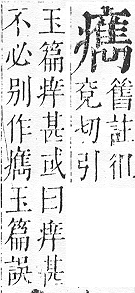 舊註徂
兖切引
玉篇痒甚或曰痒甚
不必别作玉篇誤